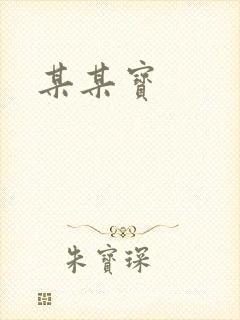 某某寶
朱寶琛